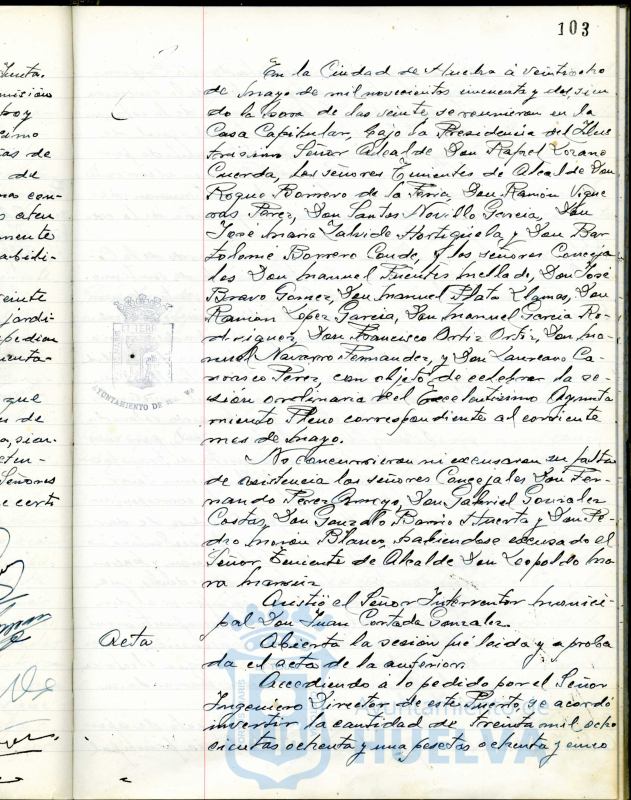 103
En la Ciudad de Huelva à veintiocho
de mayo de mil novecientos cincuenta y dos, sien
do la hora de las veinte, se reunieron en la
Casa Capitular, bajo la Presidencia del Ilus
trisimo Señor Alcalde Don Rafael Lozano
Cuerda, los señores Tenientes de Alcalde Don
Roque Barrero de la Feria, Don Ramón Vigue
ras Perez, Don Santos Novillo Garcia, Don
José Maria Zalvide Hortigüela, y Don Bar
tolomé Borrero Conde, y los señores Conceja
les Don Manuel Fuentes Mellado, Don José
Bravo Gomez, Don Manuel Plata Llamas, Don
Ramón Lopez Garcia, Don Manuel Garcia Ro-
driguez, Don Francisco Ortiz Ortiz, Don Ma-
nuel Navarro Fernandez, y Don Laureano Ca-
rrasco Perez, con objeto de celebrar la se-
sión ordinaria del Excelentisimo Ayunta
miento Pleno correspondiente al corriente
mes de mayo.
No concurrieron ni excusaron su falta
de asistencia los señores Concejales Don Fer-
nando Perez Don Gabriel Gonzalez
Costas, Don Gonzalo Barrio Huerta y Don Pe-
dro Morón Blanco, habiendose excusado el
Señor Teniente de Alcalde Don Leopoldo Mo
ra
Asistió el Señor Interventor Munici-
pal Don Juan Cortada Gonzalez.
Acta
Abierta la sesión fué leida y aproba
da el acta de la anterior.
Accediendo à lo pedido por el Señor
Ingeniero Director de este Puerto se acordó
invertir la cantidad de treinta mil ocho
cientas ochenta y una pesetas ochenta y cinco
AYUNTAMIENTO DE
Ayuntamiento de
HUELVA